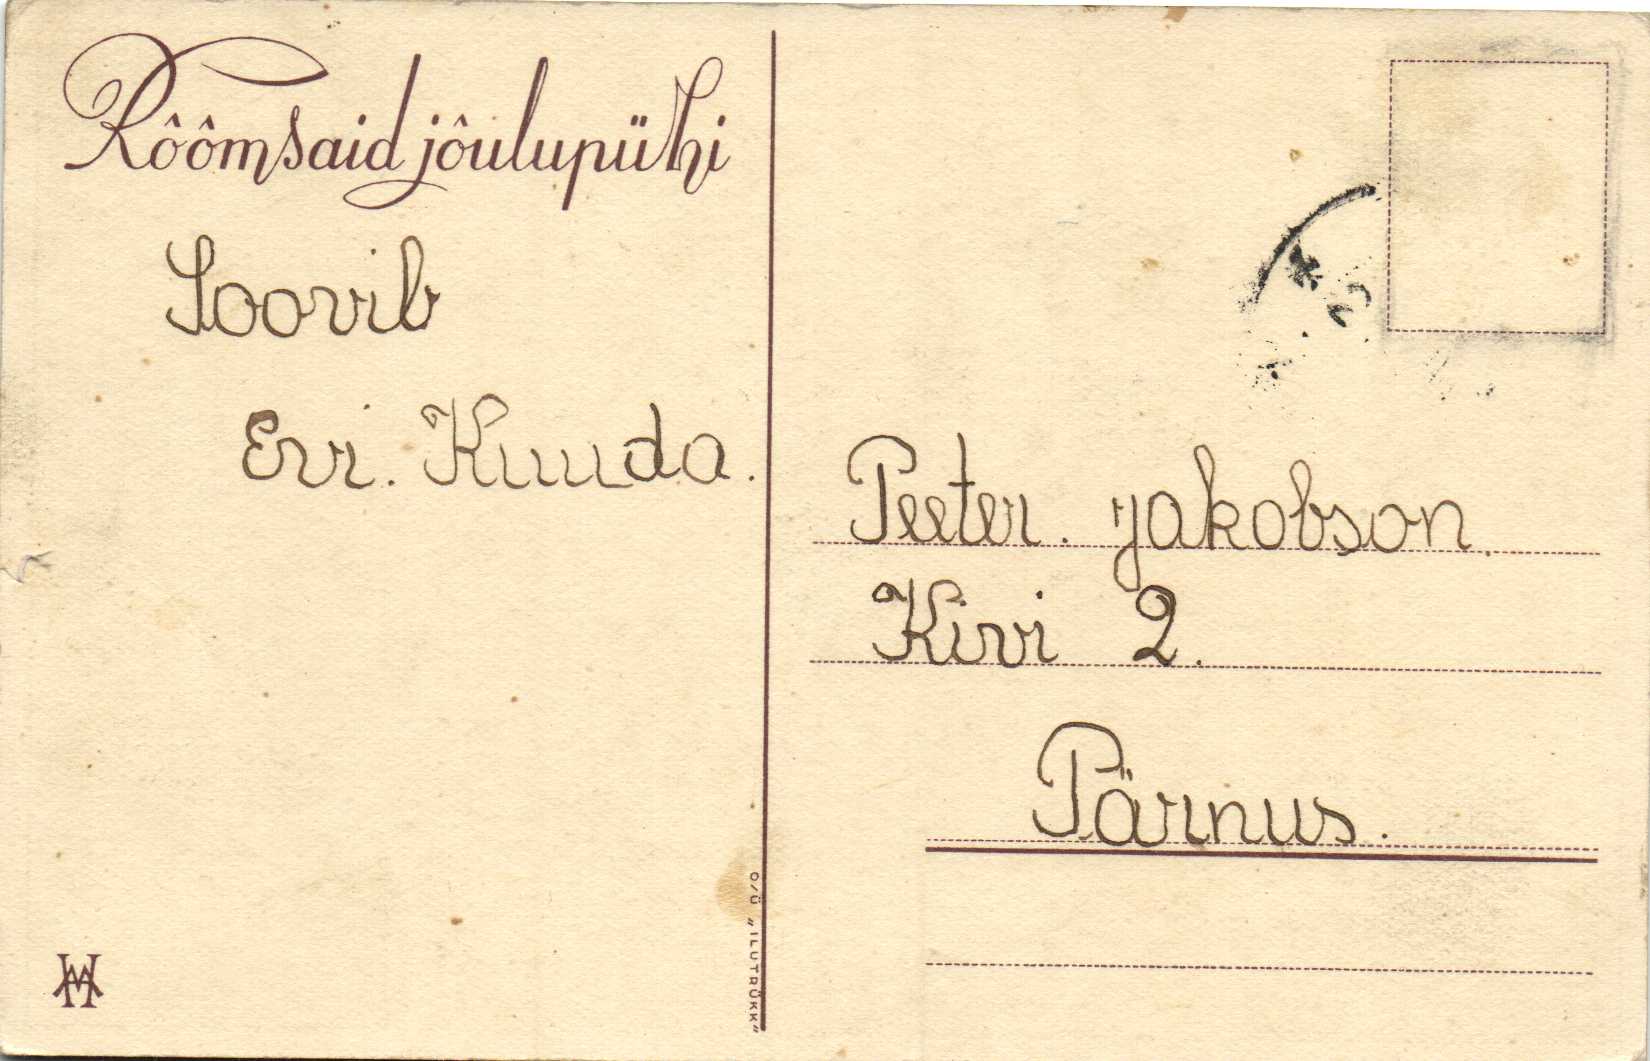 Rôômsaid jôulupühi
Soovib
Evi. Kuuda.
Peeter. Jakobson.
Kivi 2.
Pärnus.
O/Ü „ILUTRÜKK"